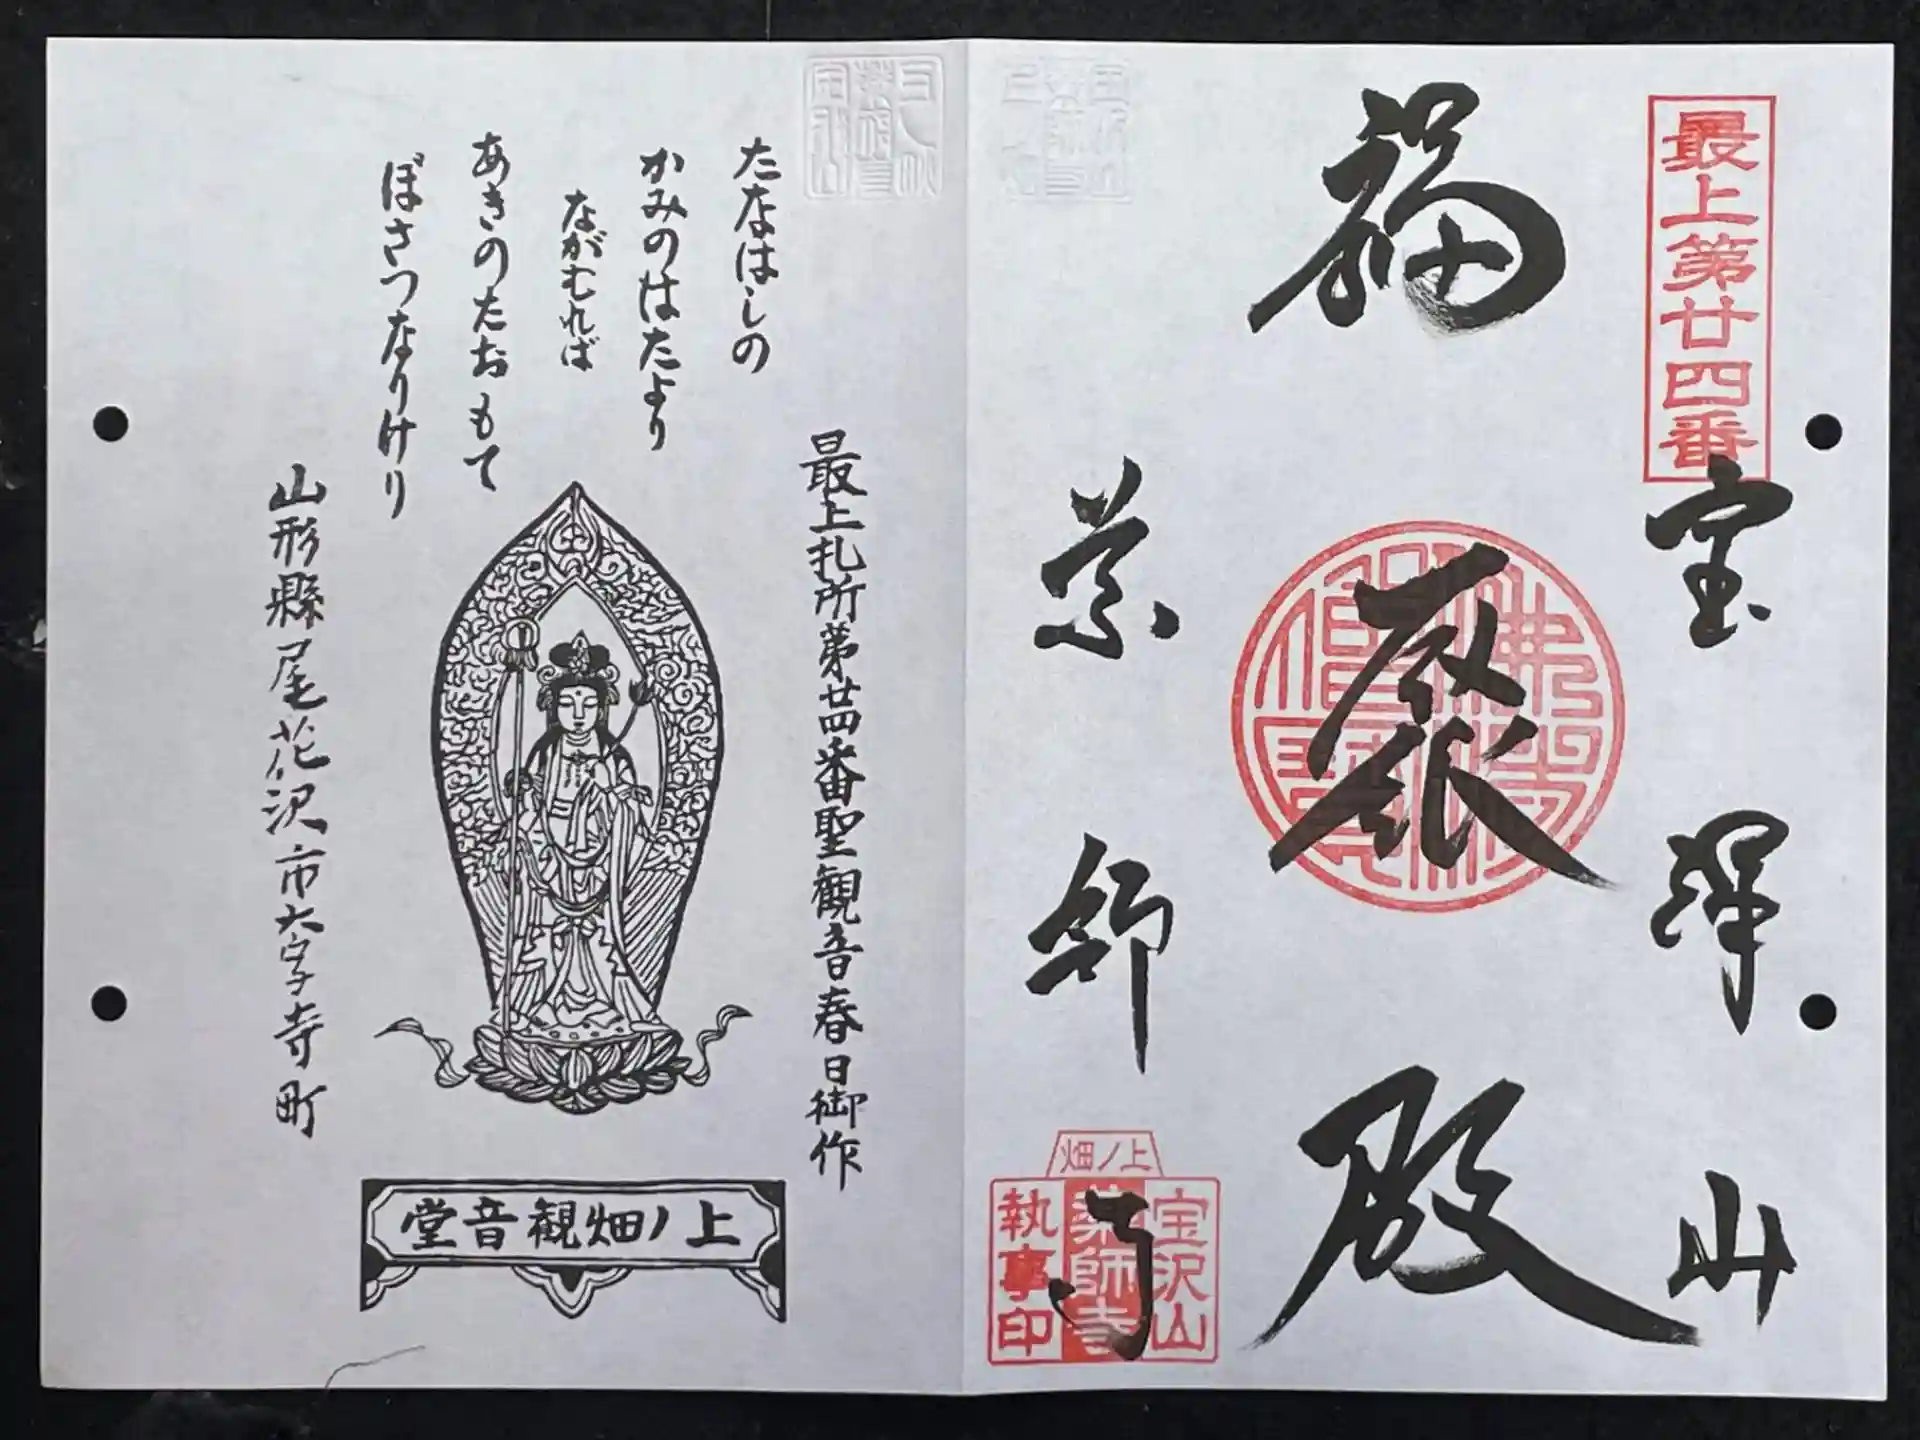 最上第廿四番
宝澤山
福聚殿
佛法僧寶
薬師寺
上ノ畑
宝沢山
薬師寺
執事印
最上札所第廿四番聖観音春日御作
たなはしの
かみのはたより
ながむれば
あきのたおもて
ぼさつなりけり
山形縣尾花沢市大字寺町
上ノ畑観音堂